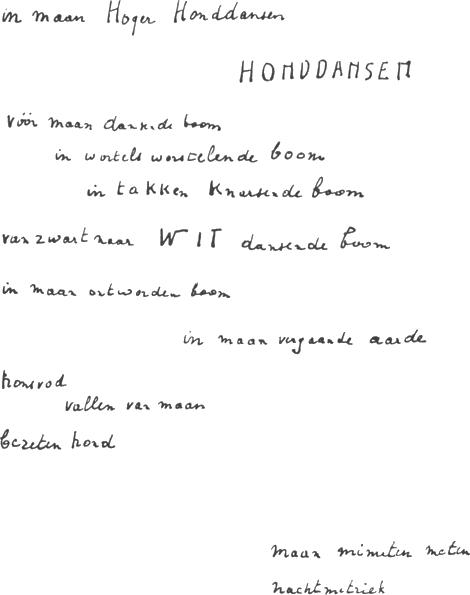 in maan Hoger Honddansen
HONDDANSEN
vóór maan dansende boom
in wortels worstelende boom
in takken Knarsende boom
van zwart naar WIT dansende boom
in maan ontworden boom
in maan vergaande aarde
honsvod
vallen van maan
bezeten hond
maan minuten meten
nachtmetriek